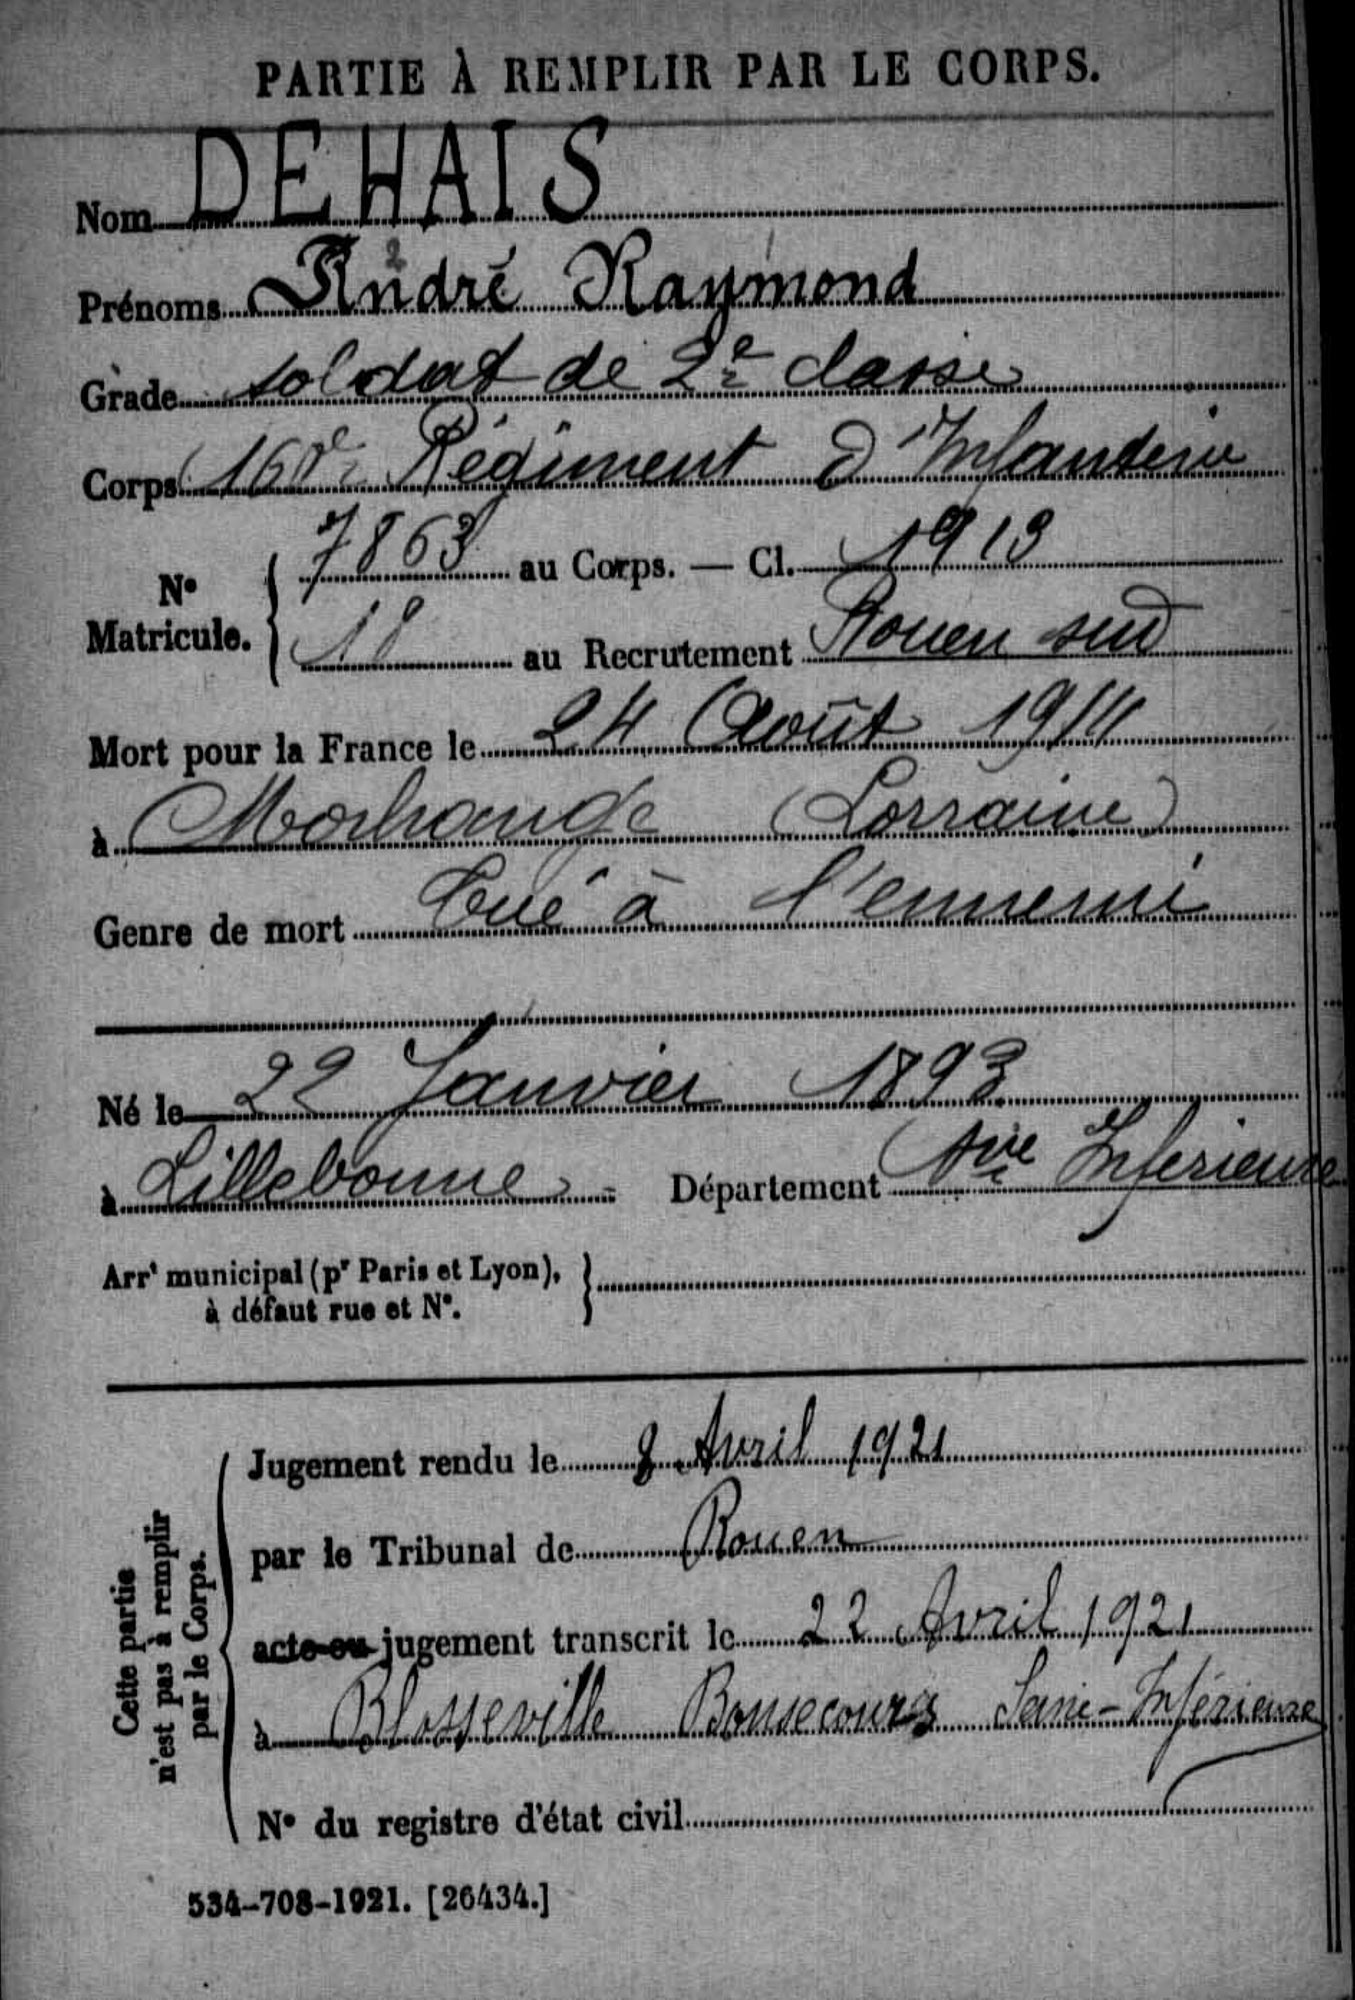 PARTIE À REMPLIR PAR LE CORPS.
Nom DEHAIS
Prénoms André Raymond
Grade soldat de 2e classe
Corps 160e Régiment d'Infanterie
No Matricule. { 7863 au Corps. — Cl. 1913
18 au Recrutement Rouen sud
Mort pour la France le 24 Août 1914
à Morhange (Lorraine)
Genre de mort Tué à l'ennemi
Né le 22 Janvier 1893
à Lillebonne - Département Sne Inferieure
Arrt municipal (pr Paris et Lyon), }
à défaut rue et No.
Cette partie
n'est pas à remplir
par le Corps.
Jugement rendu le 8 Avril 1921
par le Tribunal de Rouen
acte ou jugement transcrit le 22 Avril 1921
à Blosseville Bonsecours Seine-Inférieure
No du registre d'état civil
534-708-1921. [26434.]